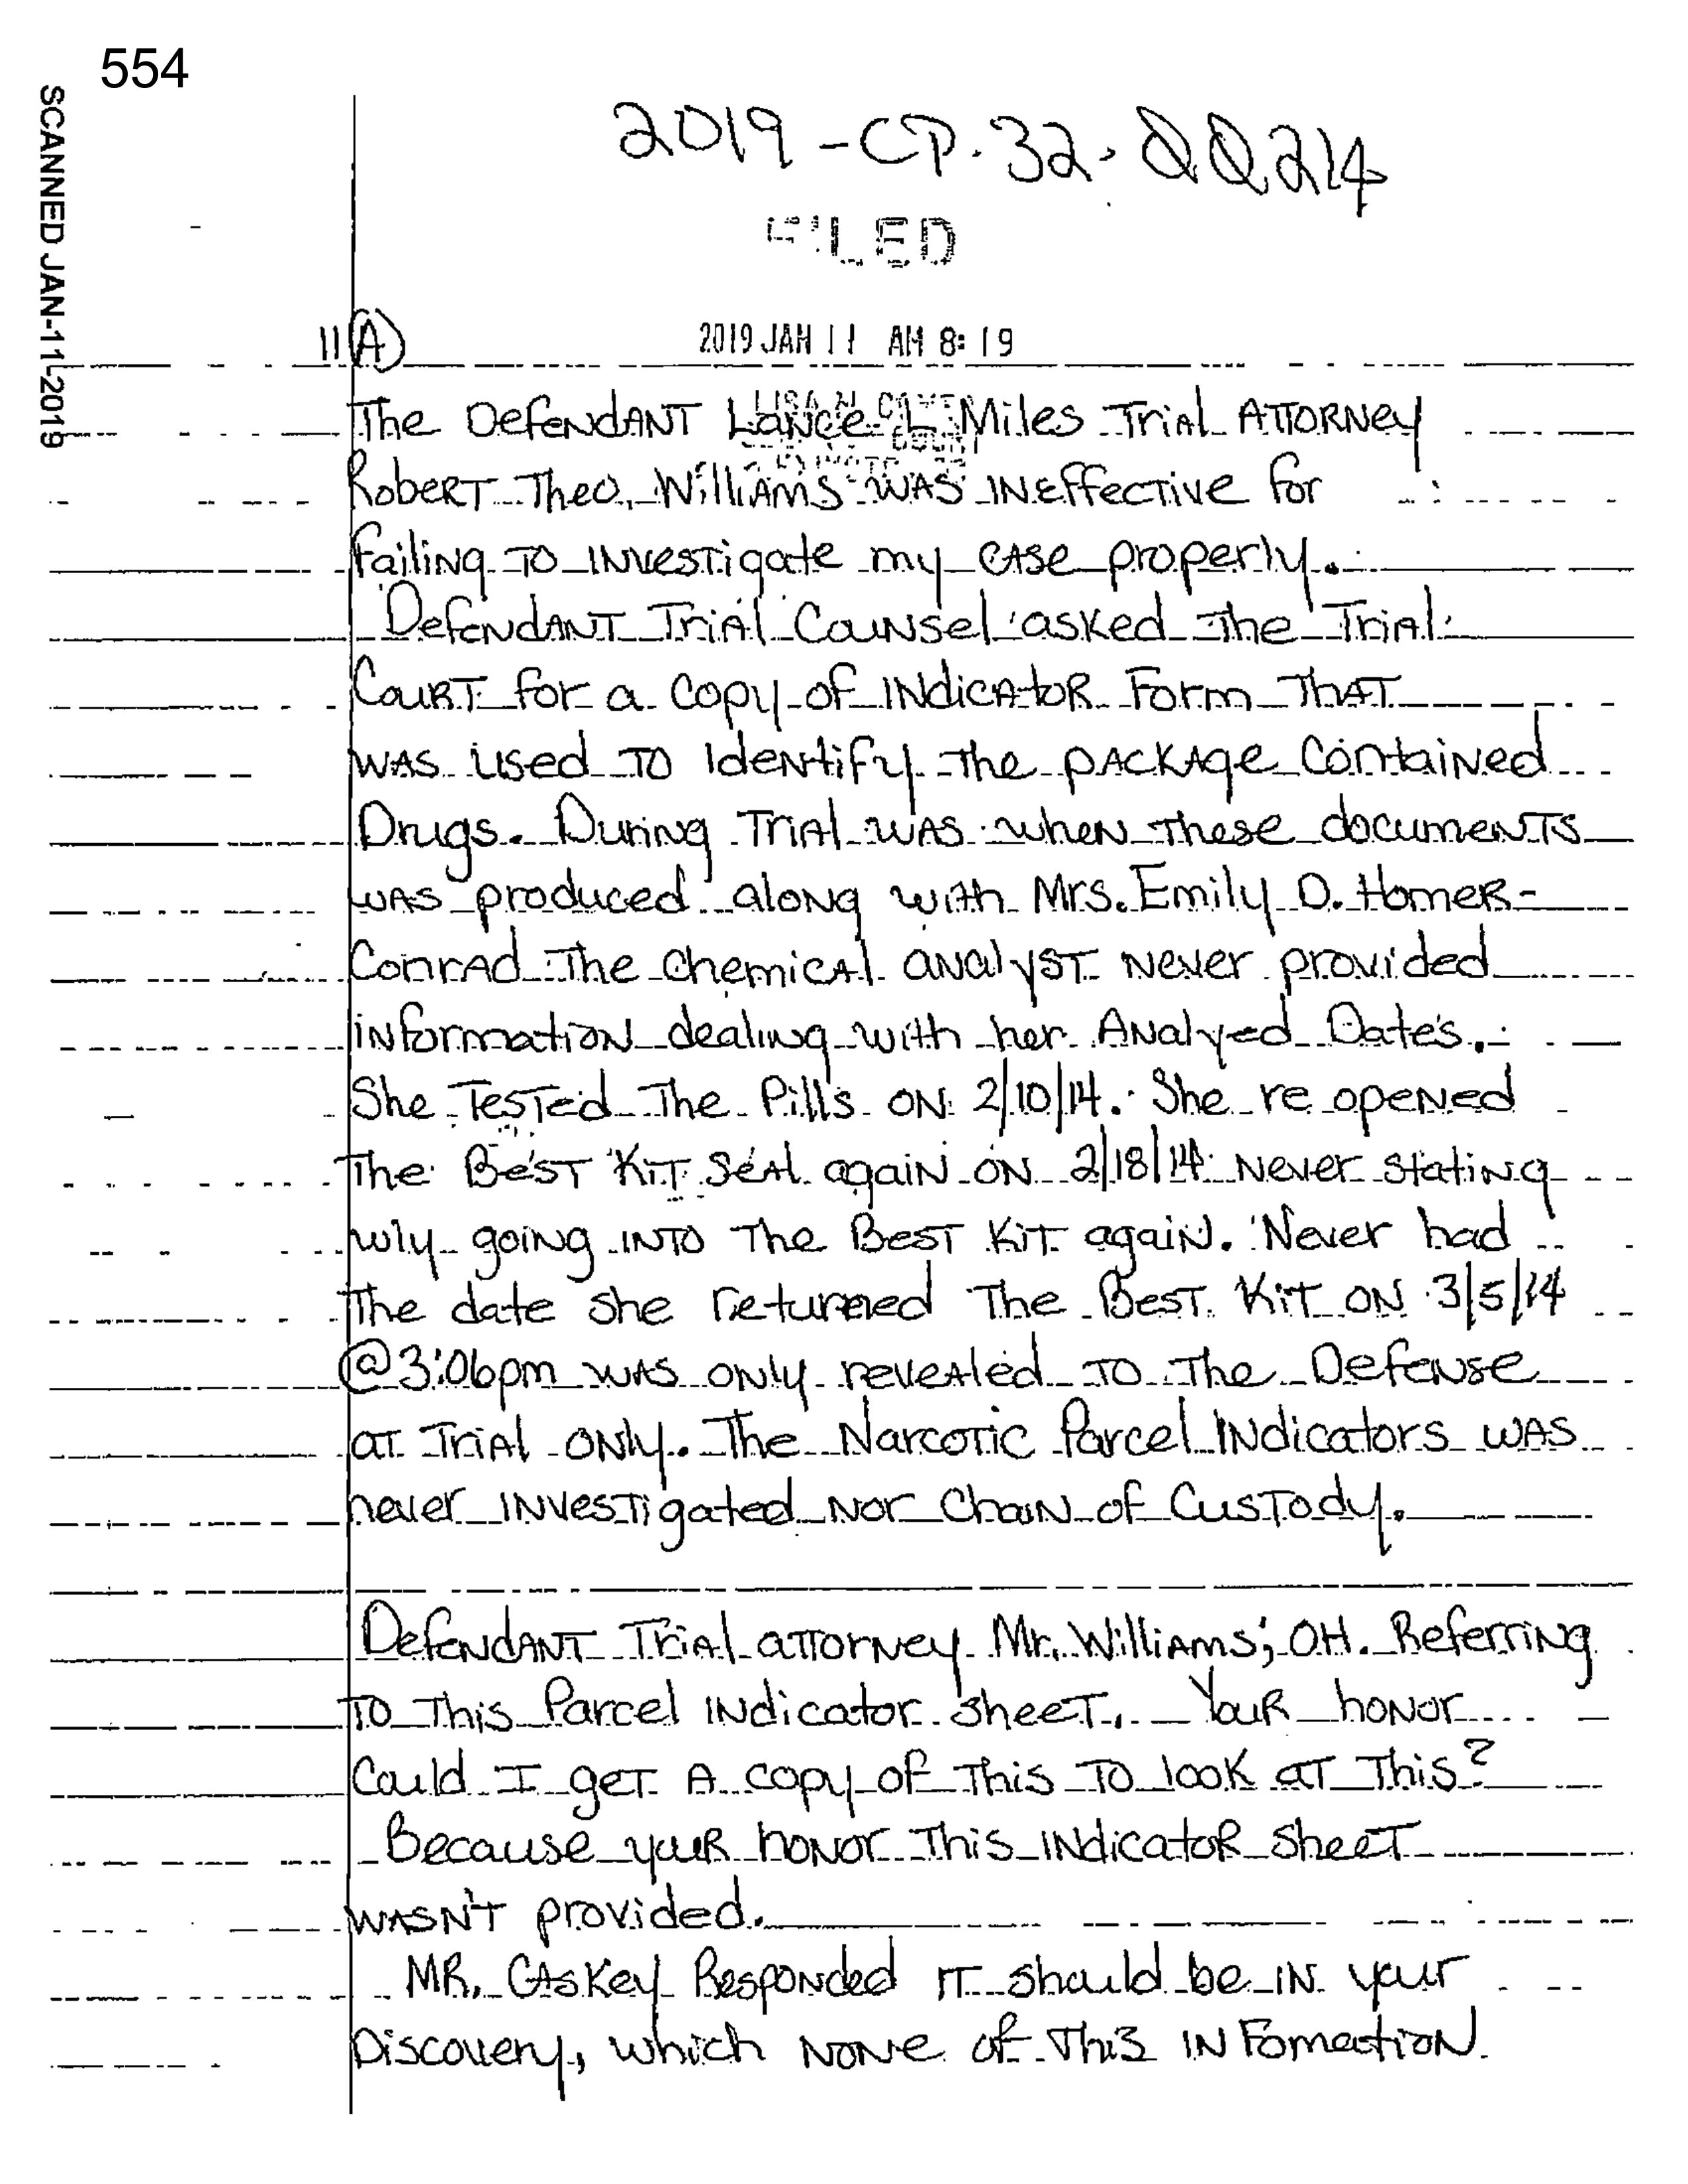 554
SCANNED JAN-11-2019
2019-CP-32-00214
FILED
11 (A)
2019 JAN 11 AM 8:19
LISA M. COMER
The Defendant Lance L. Miles Trial Attorney
Robert Theo, Williams was ineffective for
failing to investigate my case properly.
Defendant Trial Counsel asked the Trial
Court for a copy of indicator Form That
was used to identify the package contained
Drugs. During Trial was when these documents
was produced along with Mrs. Emily D. Homer-
Conrad the chemical analyst never provided
information dealing with her Analyed Date's.
She Tested the Pills on 2/10/14. She re opened
the Best Kit seal again on 2/18/14 never stating
why going into the Best Kit again. Never had
the date she returned the Best Kit on 3/5/14
@3:06pm was only revealed to the Defense
at Trial only. The Narcotic Parcel Indicators was
never investigated nor Chain of Custody.
Defendant Trial attorney Mr. Williams; OH. Referring
to this Parcel indicator sheet, Your honor
Could I get a copy of this to look at this?
Because your honor this indicator sheet
wasn't provided.
MR. Caskey Responded it should be in your
Discovery, which none of this in Fomation